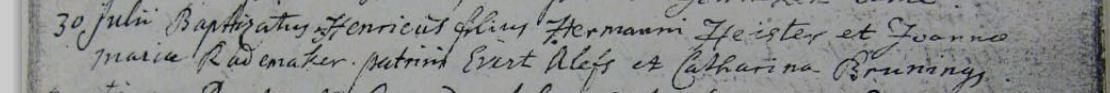 30 Julii Baptizatus Henricus filius Hermanni Heister et Joanna
Maria Rademaker. patrini Evert Alefs et Catharina Brunings.